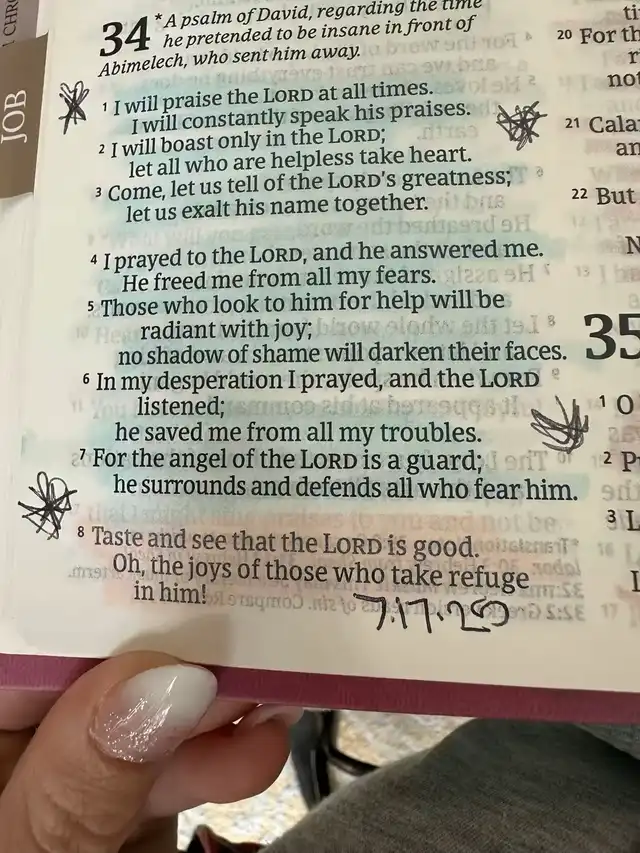 CHRO
JOB
34 *A psalm of David, regarding the time
he pretended to be insane in front of
Abimelech, who sent him away.
1 I will praise the LORD at all times.
I will constantly speak his praises.
2 I will boast only in the LORD;
let all who are helpless take heart.
3 Come, let us tell of the LORD's greatness;
let us exalt his name together.
4 I prayed to the LORD, and he answered me.
He freed me from all my fears.
5 Those who look to him for help will be
radiant with joy;
no shadow of shame will darken their faces.
6 In my desperation I prayed, and the LORD
listened;
he saved me from all my troubles.
7 For the angel of the LORD is a guard;
he surrounds and defends all who fear him.
8 Taste and see that the LORD is good.
Oh, the joys of those who take refuge
in him!
7.17.20
20 For th
not
21 Cala
an
22 But
35
1 O
2 P
3 L